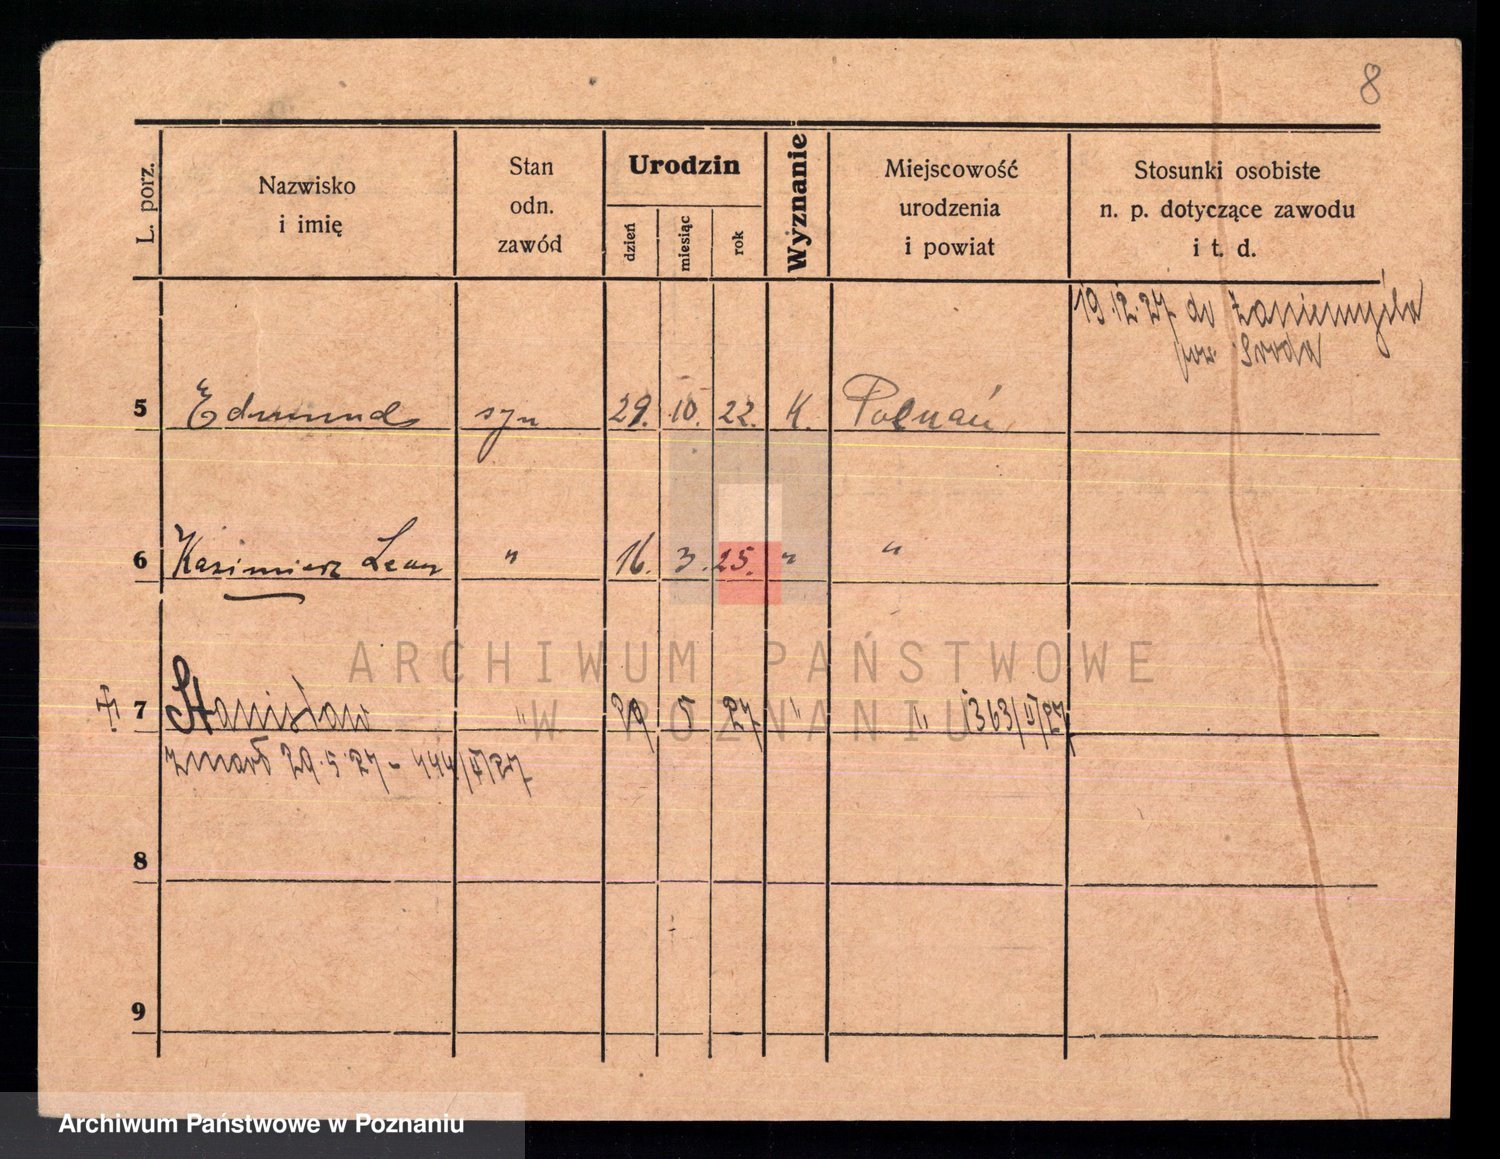 8
L. porz.
Nazwisko
i imię
Stan
odn.
zawód
Urodzin
dzień
miesiąc
rok
Wyznanie
Miejscowość
urodzenia
i powiat
Stosunki osobiste
n. p. dotyczące zawodu
i t. d.
19.12.27 do Zaniemyśla
pow. Środa
5 Edmund syn 29. 10. 22. K. Poznań
6 Kazimierz Leon " 16. 3. 25. " "
7 Stanisław " 29 5 27 " " 1363/II/27
zmarł 29.5.27 - 444/II/27
8
9
ARCHIWUM PAŃSTWOWE
W POZNANIU
Archiwum Państwowe w Poznaniu